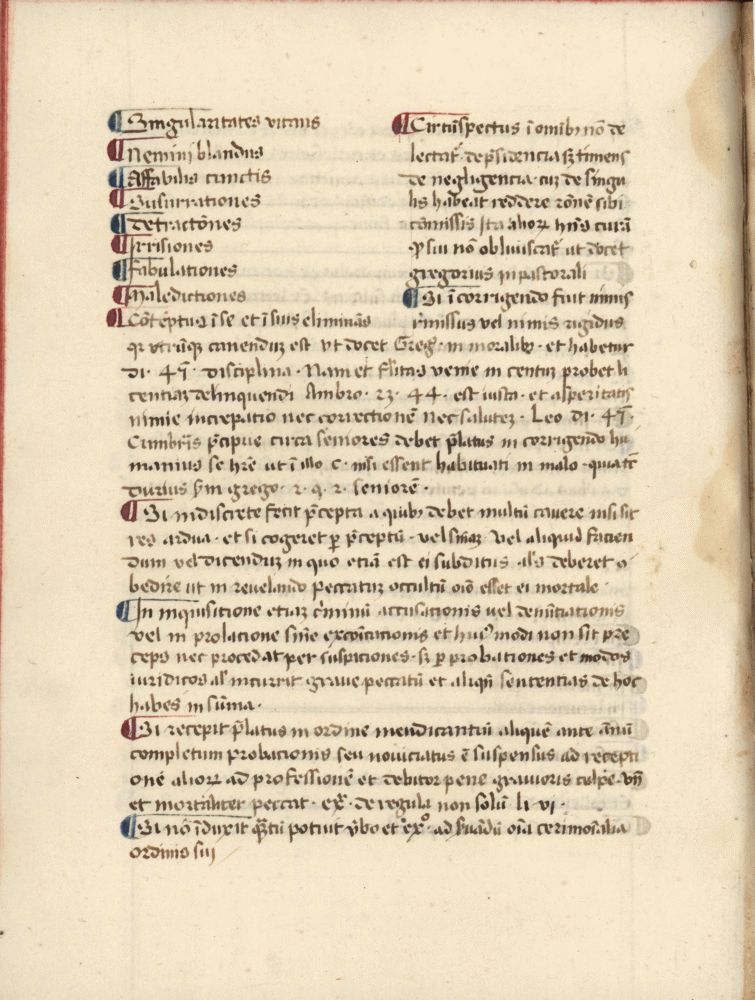 Singularitates vitans
Nemini blandus
Affabilis cunctis
Susurrationes
Detractiones
Irrisiones
Fabulationes
Maledictiones
Cōtēptus ī se et ī suis elimināt
Circūspectus ī omībꝫ nō de
lectat᷑ de p̄sidencia sꝫ timens
de negligencia cuꝫ de singu
lis habeat reddere rōnē sibi
cōmissis Ita alioꝝ hn̄s curā
ꝙ sui nō obliuiscat᷑ ut docet
gregorius in pastorali
Si ī corrigendo fuit nimis
rēmissus vel nimis rigidus
qꝛ vtrūqꝫ cauenduꝫ est vt docet Greg. in moralibꝫ. et habetur
di. 4ꝯ. disciplina. Nam et facilitas venie incentiuꝫ prebet li
centiaꝫ delinquendi Ambro. 23. 44. est iusta. et asperitatis
nimie increpatio nec correctionē nec saluteꝫ. Leo di. 4ꝯ.
p̄cipue circa seniores debet p̄latus in corrigendo hu
manius se hr̄e ut ī illo c. nisi essent habituati in malo.
durius grego. 2. q. 2. seniorē.
Si indiscrete fecit p̄cepta a quibꝫ debet multū cauere nisi sit
res ardua. et si cogeret ꝑ p̄ceptū. vel vel aliquid facien
dum vel dicenduꝫ in quo etiā est ei subditus. als̄ deberet o
bedire ut in reuelando peccatuꝫ occultū oīo esset ei mortale.
In inquisitione etiaꝫ c̄minū accusationis vel denūtiationis
vel in prolatione sn̄ie excōicationis et huiᵒmodi non sit pre
ceps nec procedat per suspitiones. sꝫ ꝑ probationes et modos
iuridicos al' incurrit graue peccatū et aliqn̄ sententias de hoc
habes in sūma.
Si recepit p̄latus in ordine mendicantiū aliquē ante ānū
completum probationis seu nouiciatus ē suspensus ad recepti
onē alioꝝ ad professionē et debitor pene grauioris culpe. vn̄
et mortaliter peccat. ex̄. de regula non solū li. vi.
Si nō īduxit q̄tū potuit v̄bo et exᵒ. ad s̄uādū oīa cerimōialia
ordinis sui